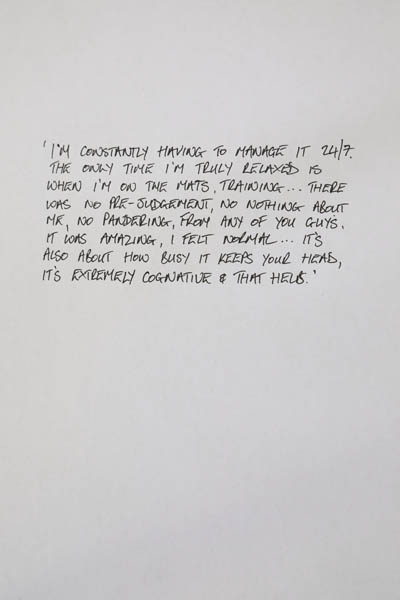 'I'M CONSTANTLY HAVING TO MANAGE IT 24/7.
THE ONLY TIME I'M TRULY RELAXED IS
WHEN I'M ON THE MATS, TRAINING... THERE
WAS NO PRE-JUDGEMENT, NO NOTHING ABOUT
ME, NO PANDERING, FROM ANY OF YOU GUYS.
IT WAS AMAZING, I FELT NORMAL... IT'S
ALSO ABOUT HOW BUSY IT KEEPS YOUR HEAD,
IT'S EXTREMELY COGNATIVE & THAT HELPS.'